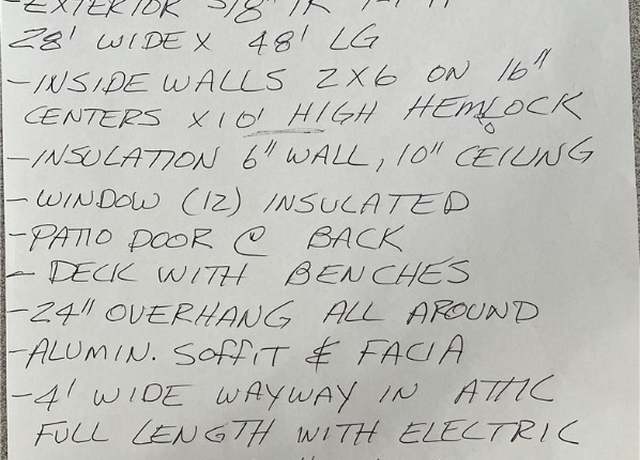 - EXTERIOR 5/8"
28' WIDE X 48' LG
- INSIDE WALLS 2X6 ON 16"
CENTERS X 10' HIGH HEMLOCK
- INSULATION 6" WALL, 10" CEILING
- WINDOW (12) INSULATED
- PATIO DOOR @ BACK
- DECK WITH BENCHES
- 24" OVERHANG ALL AROUND
- ALUMIN. SOFFIT & FACIA
- 4' WIDE WAYWAY IN ATTIC
FULL LENGTH WITH ELECTRIC